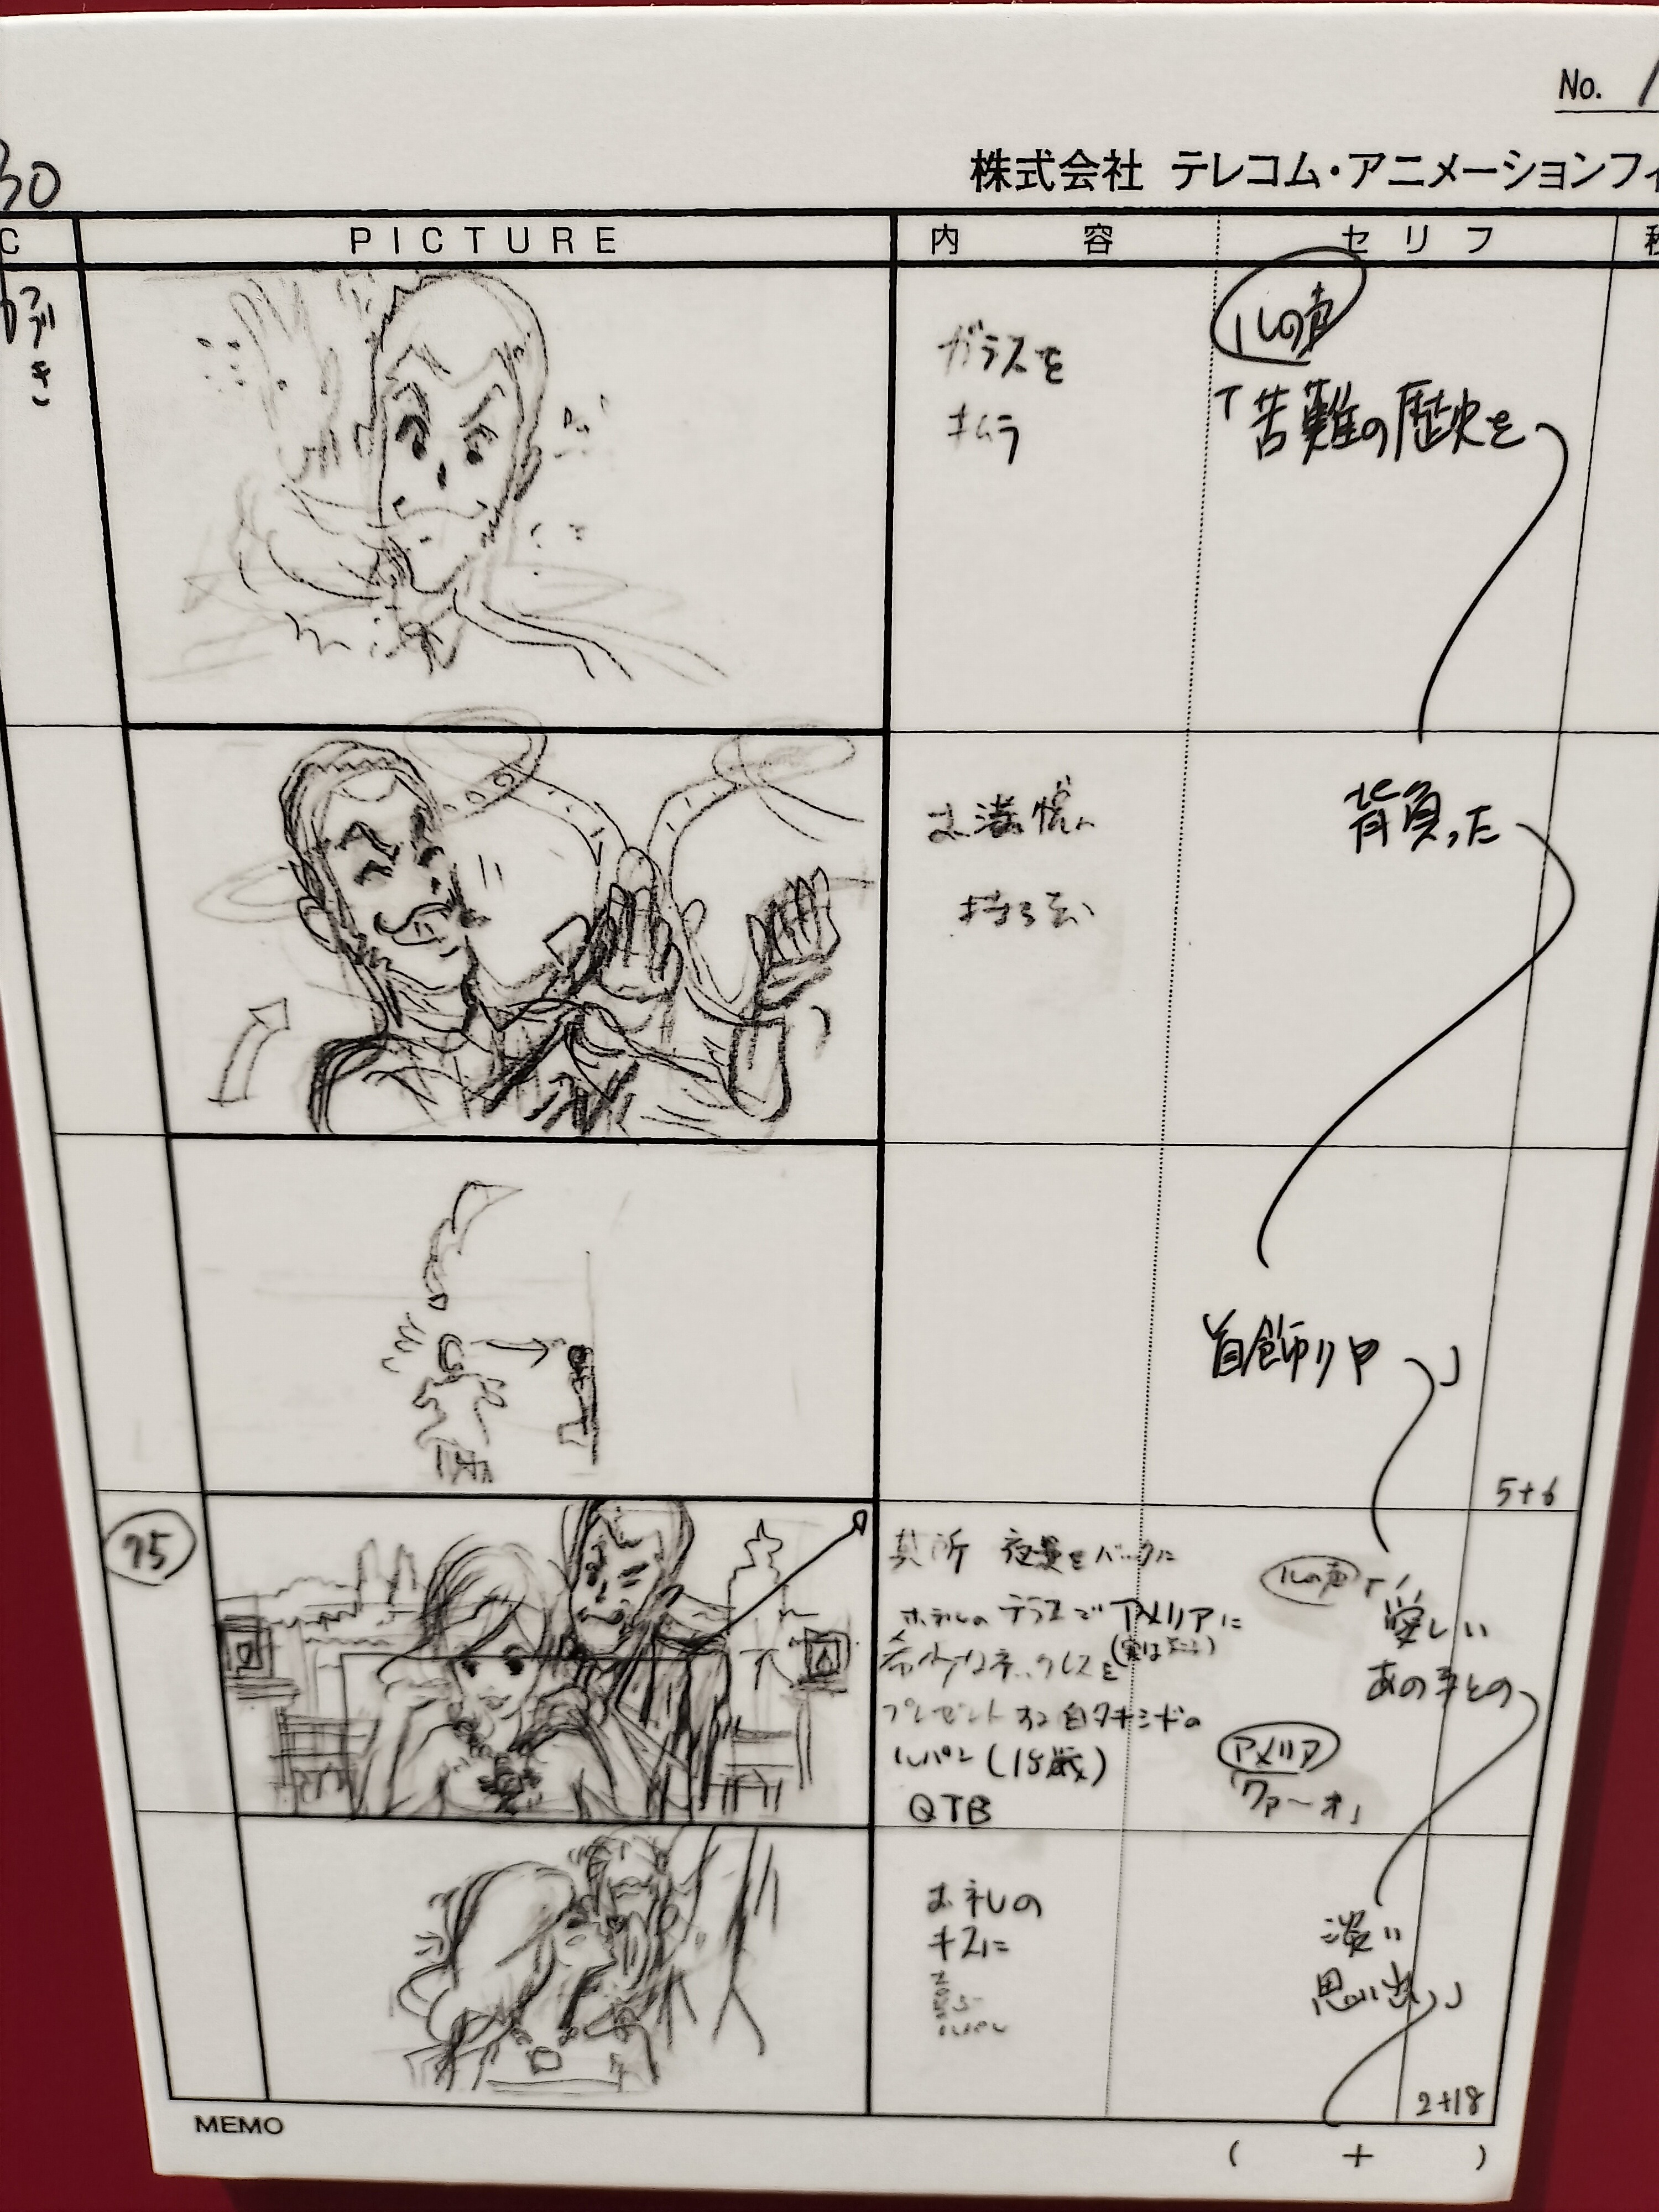 No. 1
30
株式会社 テレコム・アニメーションフィ
C
PICTURE
内容
セリフ
つづき
ガラスを
ルの声
「苦難の歴史を
背負った
首飾りや」
5+6
75
夜景をバックに
ホテルのテラスでアメリアに
希少なネックレスを
プレゼントする白タキシードの
ルパン(18歳)
QTB
ルの声
愛しい
あの子との
アメリア
「ワァ〜オ」
お礼の
キスに
淡い
思い出」
2+18
MEMO
( + )